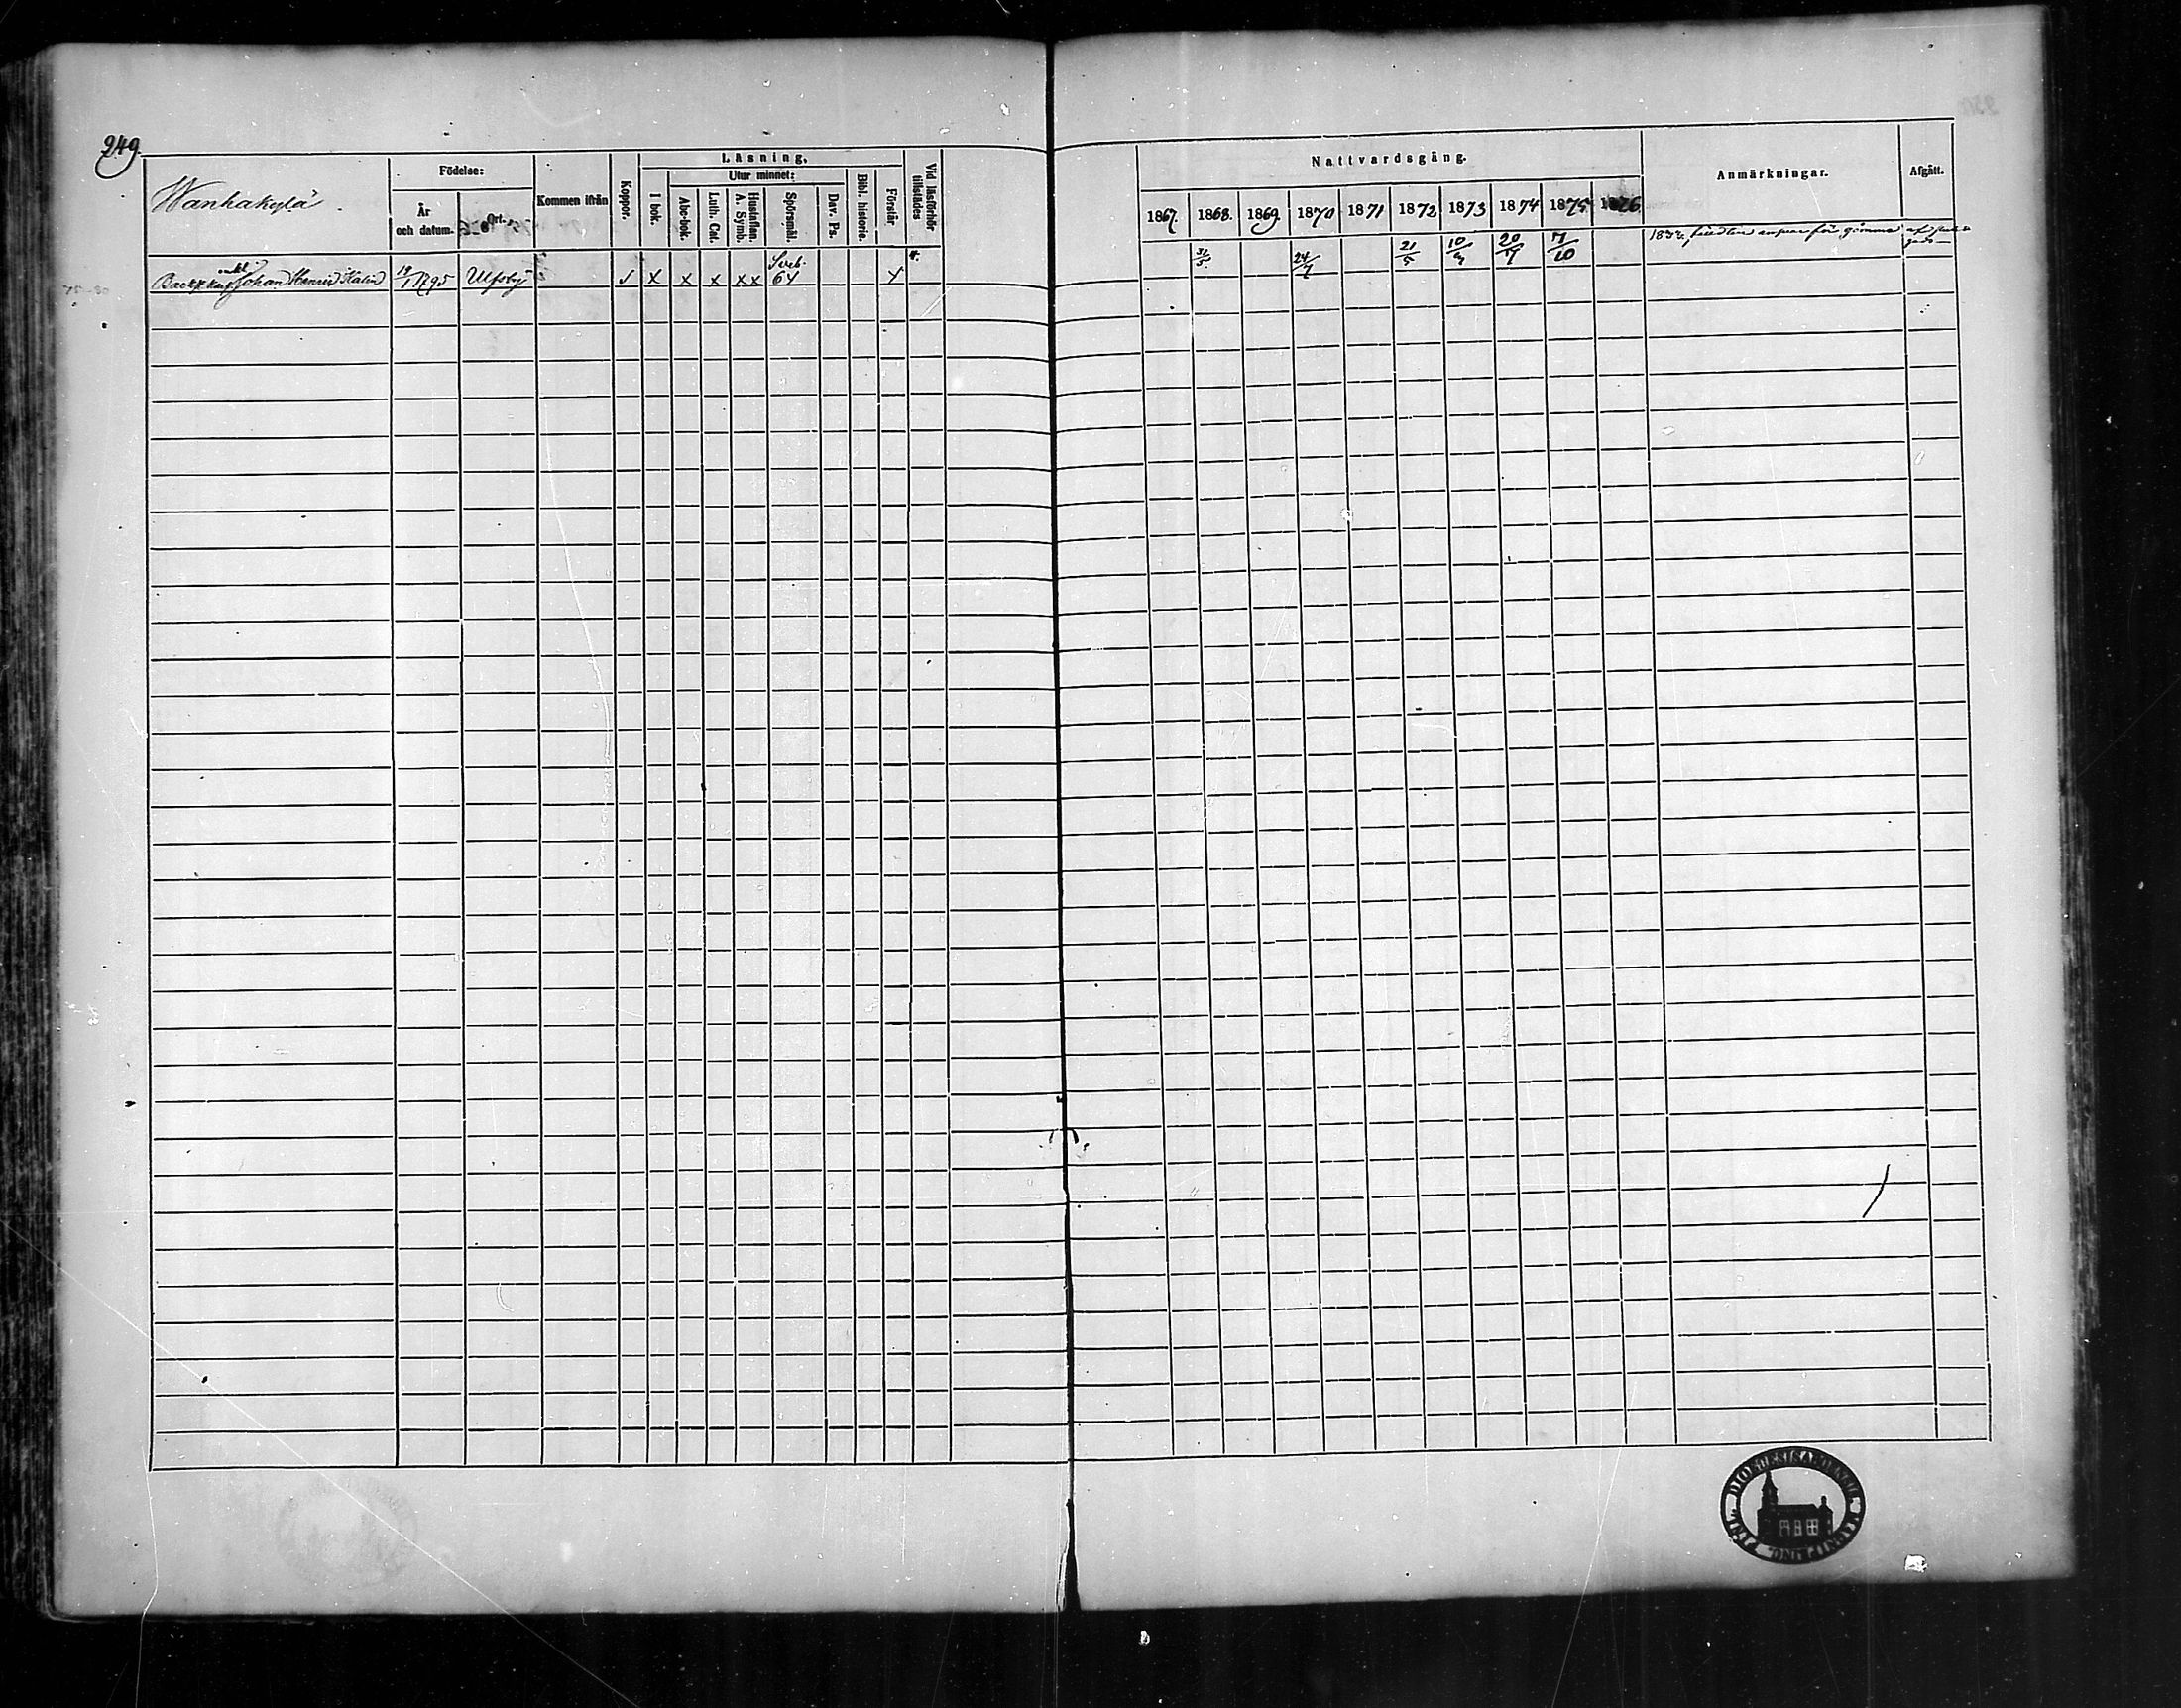 249.
Wanhakylä
Födelse:
År och datum.
Ort.
Kommen ifrån
Koppor.
Läsning.
I bok.
Utur minnet:
Abc-bok.
Luth. Cat.
Hustaflan. A. Symb.
Spörsmål.
Dav. Ps.
Bibl. historie.
Förstår
Vid läsförhör tillstädes
Nattvardsgång.
1867. 1868. 1869. 1870 1871 1872 1873 1874 1875 1876
Anmärkningar.
Afgått.
enkl.
Johan Henric
19/1 1795 Ulfsby
x x x x x
Sveb.
64
x
31/5. 24/7 21/5 10/9 20/9 7/10
1832, för
DIOECESIS ABOENSIS